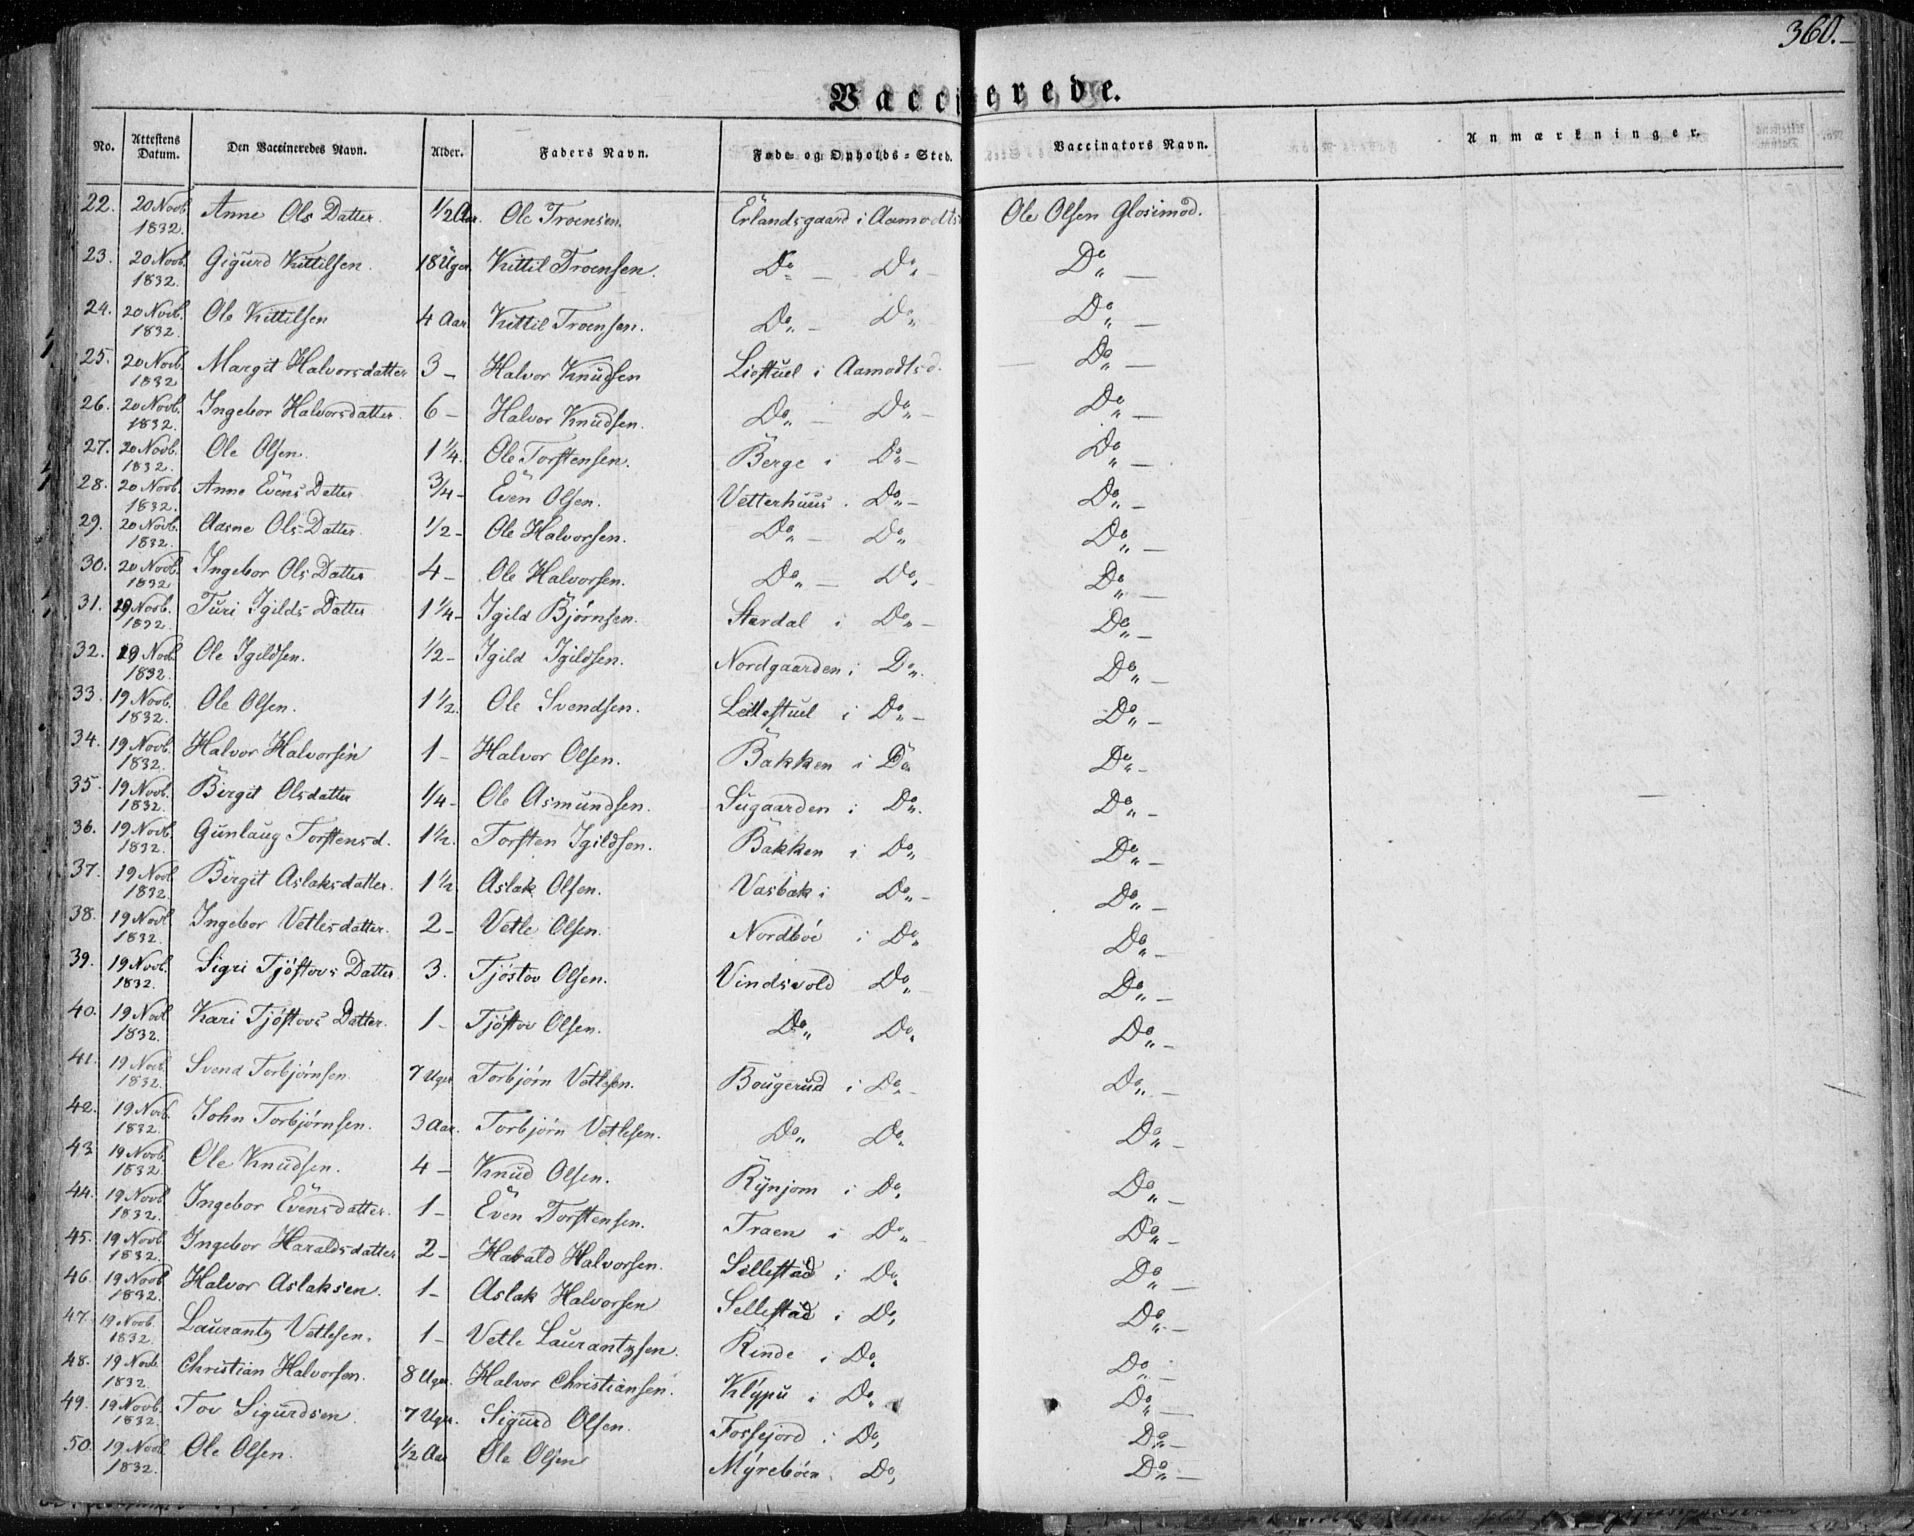 360.
Vaccinerede.
No. Attestens Datum. Den Vaccineredes Navn. Alder. Faders Navn. Føde- og Opholds-Sted. Vaccinators Navn. Anmærkninger.
22. 20 Novb. 1832. Anne Ols Datter. 1/2 Aar. Ole Troensen. Erlandsgaard i Aamodts Ole Olsen Glosimod.
23. 20 Novb. 1832. Gigurd Kittilsen. 18 Uger. Kittil Troensen. Do — Do — Do —
24. 20 Novb. 1832. Ole Kittilsen 4 Aar. Kittil Troensen. Do — Do Do —
25. 20 Novb. 1832 Margit Halvorsdatter 3 — Halvor Knudsen Liostuel i Aamodts d. Do —
26. 20 Novb. 1832. Ingebor Halvorsdatter. 6 — Halvor Knudsen. Do — Do — Do —
27. 20 Novb. 1832. Ole Olsen. 1 1/4. Ole Torstensen. Berge i Do — Do —
28. 20 Novb. 1832. Anne Evens Datter 3/4 — Even Olsen. Vetterhuus . Do — Do —
29. 20 Novb. 1832. Aasne Ols Datter. 1/2 — Ole Halvorsen. Do — Do Do —
30. 20 Novb. 1832 Ingebor Ols Datter 4 — Ole Halvorsen. Do — Do, Do —
31. 19 Novb. 1832. Turi Igilds Datter 1 1/4 — Igild Bjørnsen. Stardal i Do — Do —
32. 19 Novb. 1832. Ole Igildsen. 1/2 — Igild Igildsen. Nordgaarden i Do. Do —
33. 19 Novb. 1832. Ole Olsen. 1 1/2. Ole Svendsen. Leilestuel i Do — Do —
34. 19 Novb. 1832. Halvor Halvorsen 1 — Halvor Olsen. Bakken i Do Do —
35. 19 Novb. 1832. Birgit Olsdatter 1/4 — Ole Asmundsen. Sugaarden i Do. Do —
36. 19 Novb. 1832. Gunlaug Torstensd. 1 1/2. Torsten Igildsen. Bakken i Do Do —
37. 19 Novb. 1832. Birgit Aslaksdatter. 1 1/2 Aslak Olsen. Vasbak i Do — Do —
38. 19 Novb. 1832. Ingebor Vetlesdatter. 2 — Vetle Olsen. Nordbøe i Do Do —
39. 19 Novb. 1832. Sigri Tjøstovs Datter 3. Tjøstov Olsen. Vindsvold Do Do —
40. 19 Novb. 1832. Kari Tjøstovs Datter. 1 — Tjøstov Olsen. Do Do. Do —
41. 19 Novb. 1832. Svend Torbjørnsen. 7 Uger Torbjørn Vetlesen. Bougerud i Do — Do —
42. 19 Novb. 1832. John Torbjørnsen. 3 Aar. Torbjørn Vetlesen. Do Do. Do —
43. 19 Novb. 1832 Ole Knudsen. 4 — Knud Olsen. Rynjom i Do. Do —
44. 19 Novb. 1832. Ingebor Evensdatter. 1 — Even Torstensen. Traen i Do Do —
45. 19 Novb. 1832. Ingebor Haraldsdatter 2 — Harald Halvorsen. Sellestad i Do. Do —
46. 19 Novb. 1832. Halvor Aslaksen. 1 — Aslak Halvorsen Sellestad i Do, Do —
47. 19 Novb. 1832. Laurantz Vetlesen. 1 — Vetle Laurantzsen. Rinde i Do. Do —
48. 19 Novb. 1832. Christian Halvorsen. 8 Uger. Halvor Christiansen. Klypu i Do. Do —
49. 19 Novb. 1832. Tov Sigurdsen. 7 Uger. Sigurd Olsen. Fosfejord i Do, Do —
50. 19 Novb. 1832. Ole Olsen. 1/2 Aar Ole Olsen Myrebøen. Do, Do —